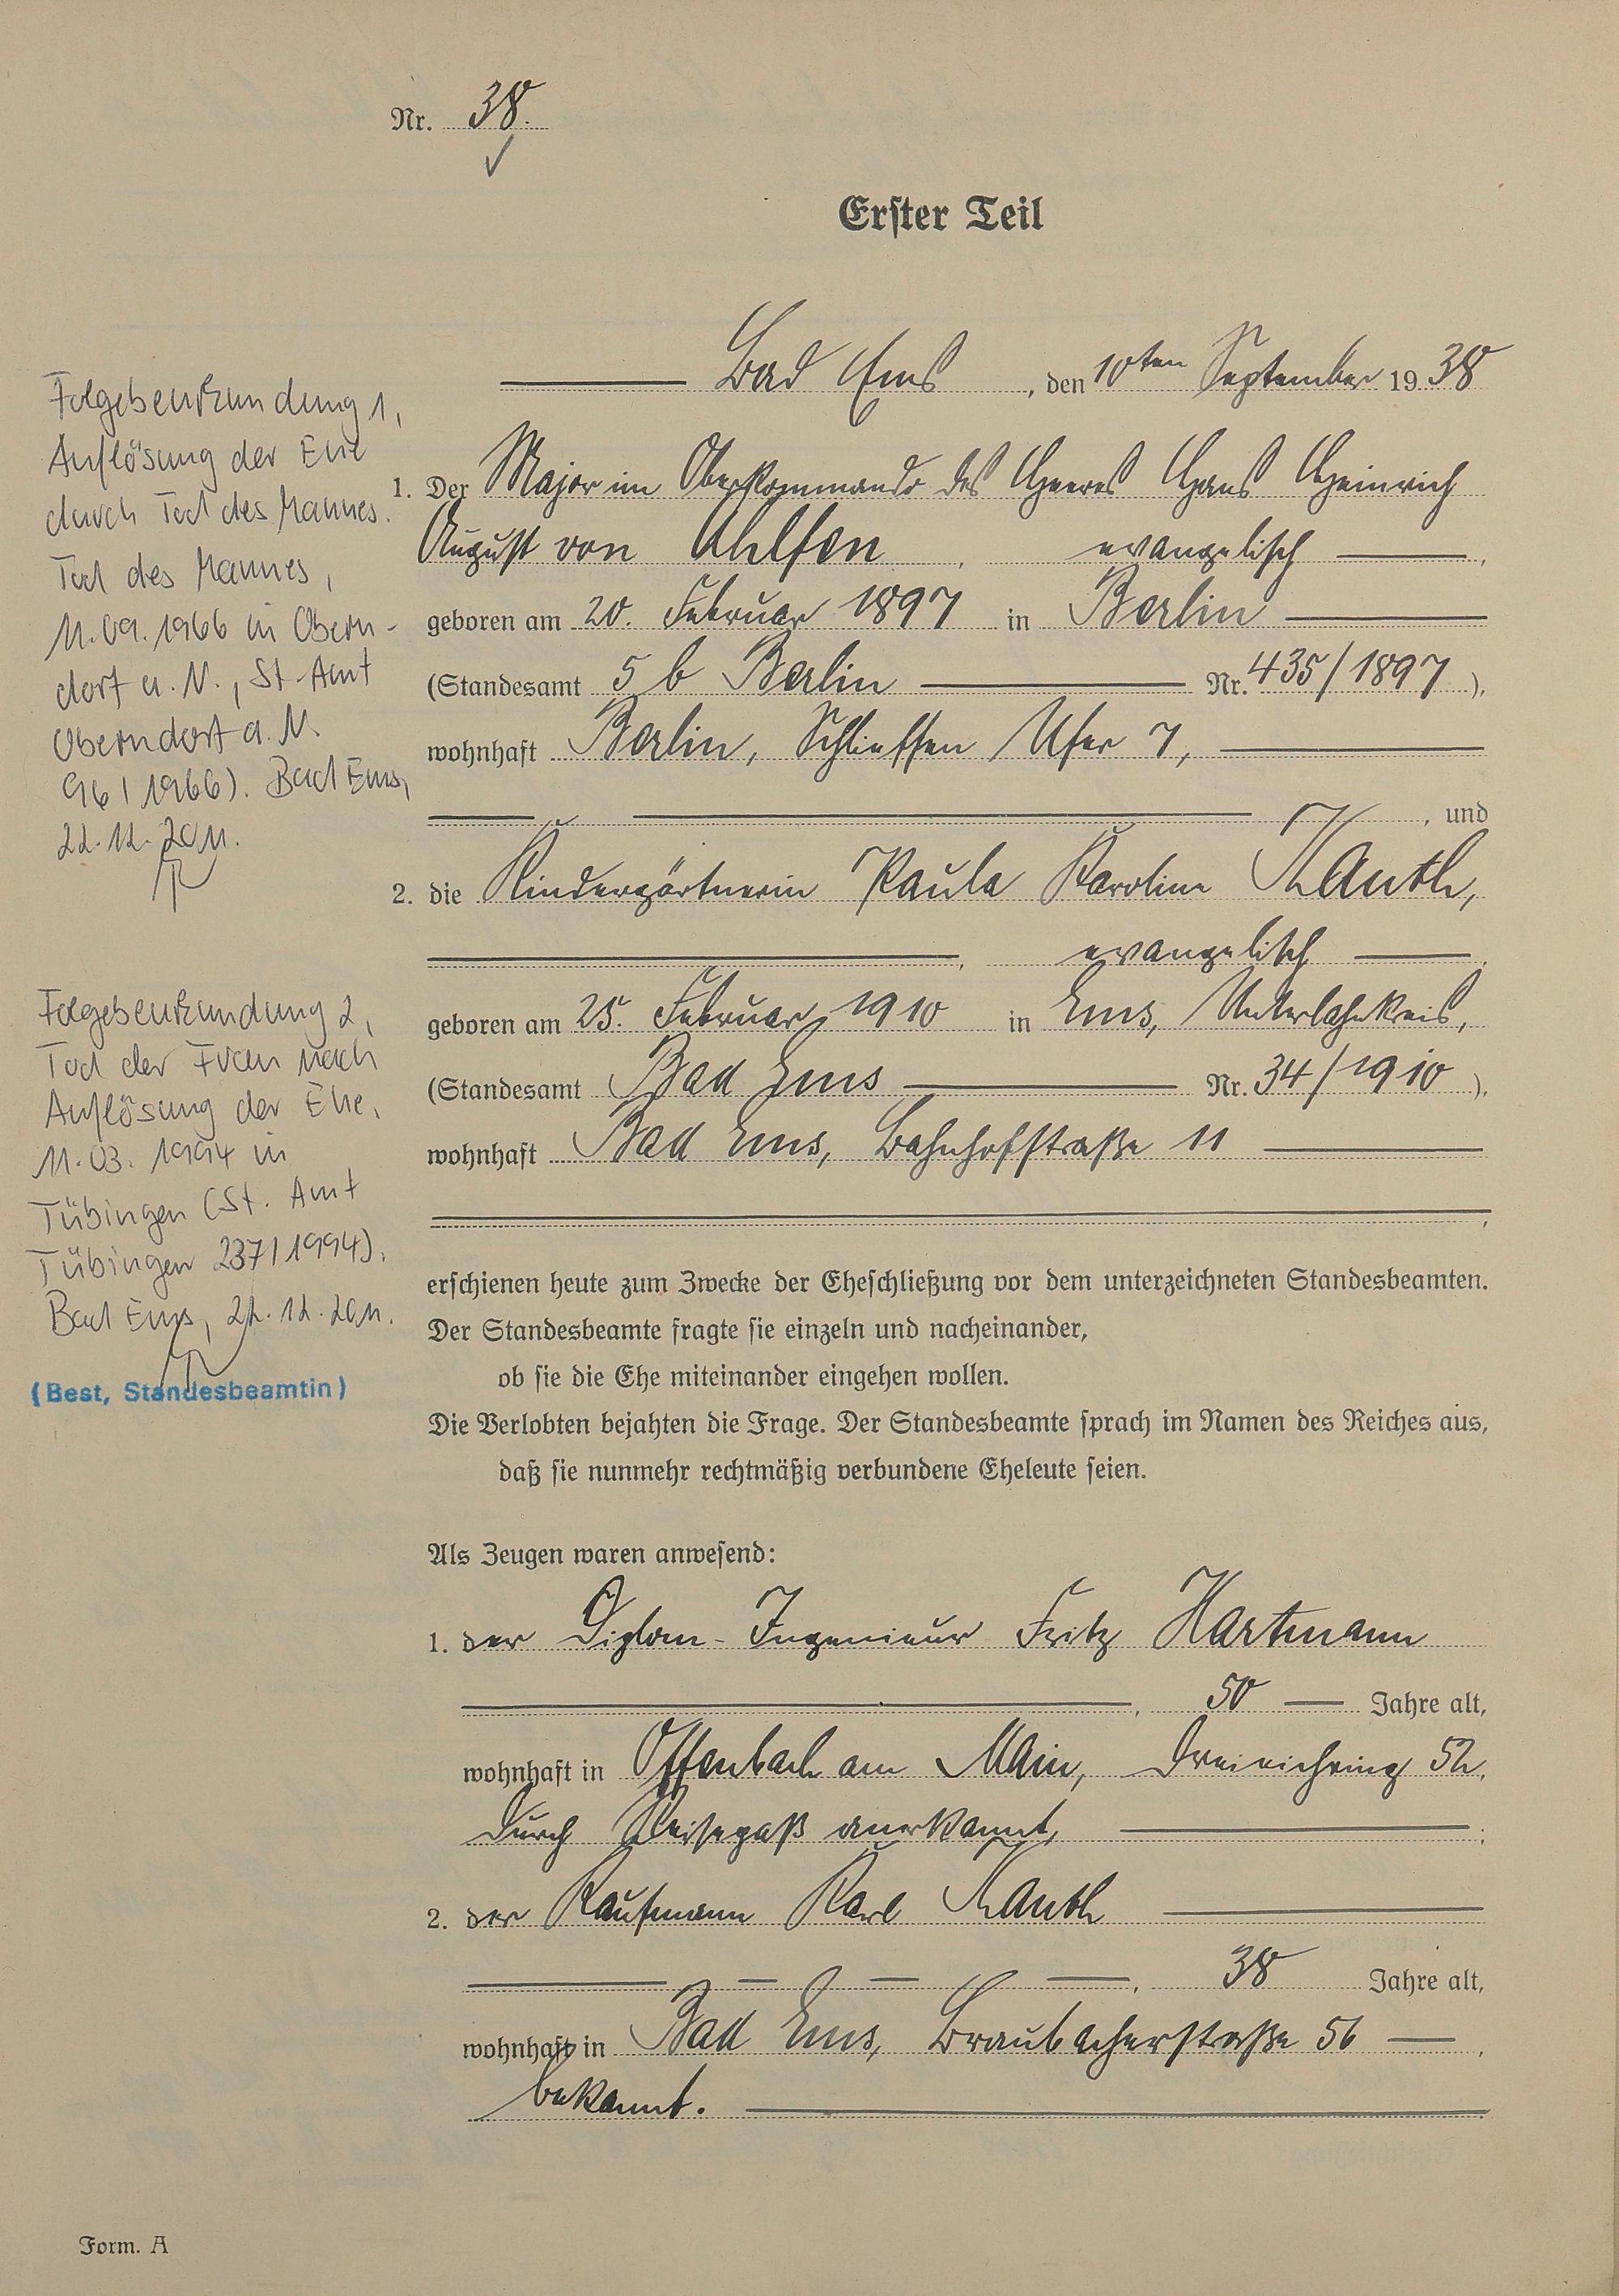 Nr. 38.
Erster Teil
Bad Ems, den 10ten September 1938
1. Der Major im Oberkommando des Heeres Hans Heinrich
August von Ahlfen, evangelisch,
geboren am 20. Februar 1897 in Berlin
(Standesamt 5 b Berlin Nr. 435/1897),
wohnhaft Berlin, Schlieffen Ufer 7,
, und
2. die Kindergärtnerin Paula Karoline Kauth,
, evangelisch,
geboren am 25. Februar 1910 in Ems, Unterlahnkreis,
(Standesamt Bad Ems Nr. 34/1910),
wohnhaft Bad Ems, Bahnhofstraße 11
,
erschienen heute zum Zwecke der Eheschließung vor dem unterzeichneten Standesbeamten.
Der Standesbeamte fragte sie einzeln und nacheinander,
ob sie die Ehe miteinander eingehen wollen.
Die Verlobten bejahten die Frage. Der Standesbeamte sprach im Namen des Reiches aus,
daß sie nunmehr rechtmäßig verbundene Eheleute seien.
Als Zeugen waren anwesend:
1. der Diplom-Ingenieur Fritz Hartmann
, 50 Jahre alt,
wohnhaft in Offenbach am Main, Dreieichring 52,
durch Reisepaß anerkannt,;
2. der Kaufmann Karl Kauth
, 38 Jahre alt,
wohnhaft in Bad Ems, Braubacherstraße 56,
bekannt.
Folgebeurkundung 1,
Auflösung der Ehe
durch Tod des Mannes.
Tod des Mannes,
11.09.1966 in Obern-
dorf a. N., St. Amt
Oberndorf a. N.
96/1966). Bad Ems,
22.12.2011.
Folgebeurkundung 2,
Tod der Frau nach
Auflösung der Ehe,
11.03.1994 in
Tübingen (St. Amt
Tübingen 237/1994).
Bad Ems, 22.12.2011.
(Best, Standesbeamtin)
Form. A